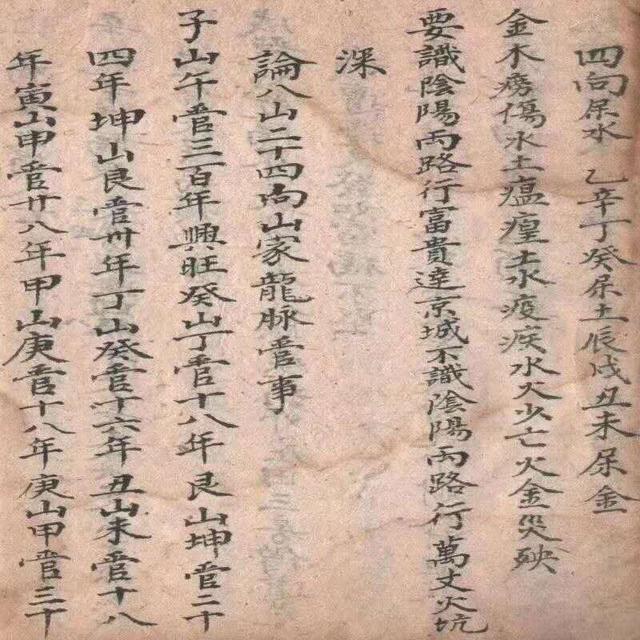 四向屎水 乙辛丁癸屎土辰戌丑未屎金
金木癆傷水土瘟㾮土水瘦疾水火少亡火金災殃
要識陰陽兩路行富貴達京城不識陰陽兩路行萬丈火坑
深
論八山二十四向山家龍脉管事
子山午管三百年興旺癸山丁管十八年艮山坤管二十
四年坤山艮管卅年丁山癸管十六年丑山未管十八
年寅山甲管廿八年甲山庚管十八年庚山甲管三十